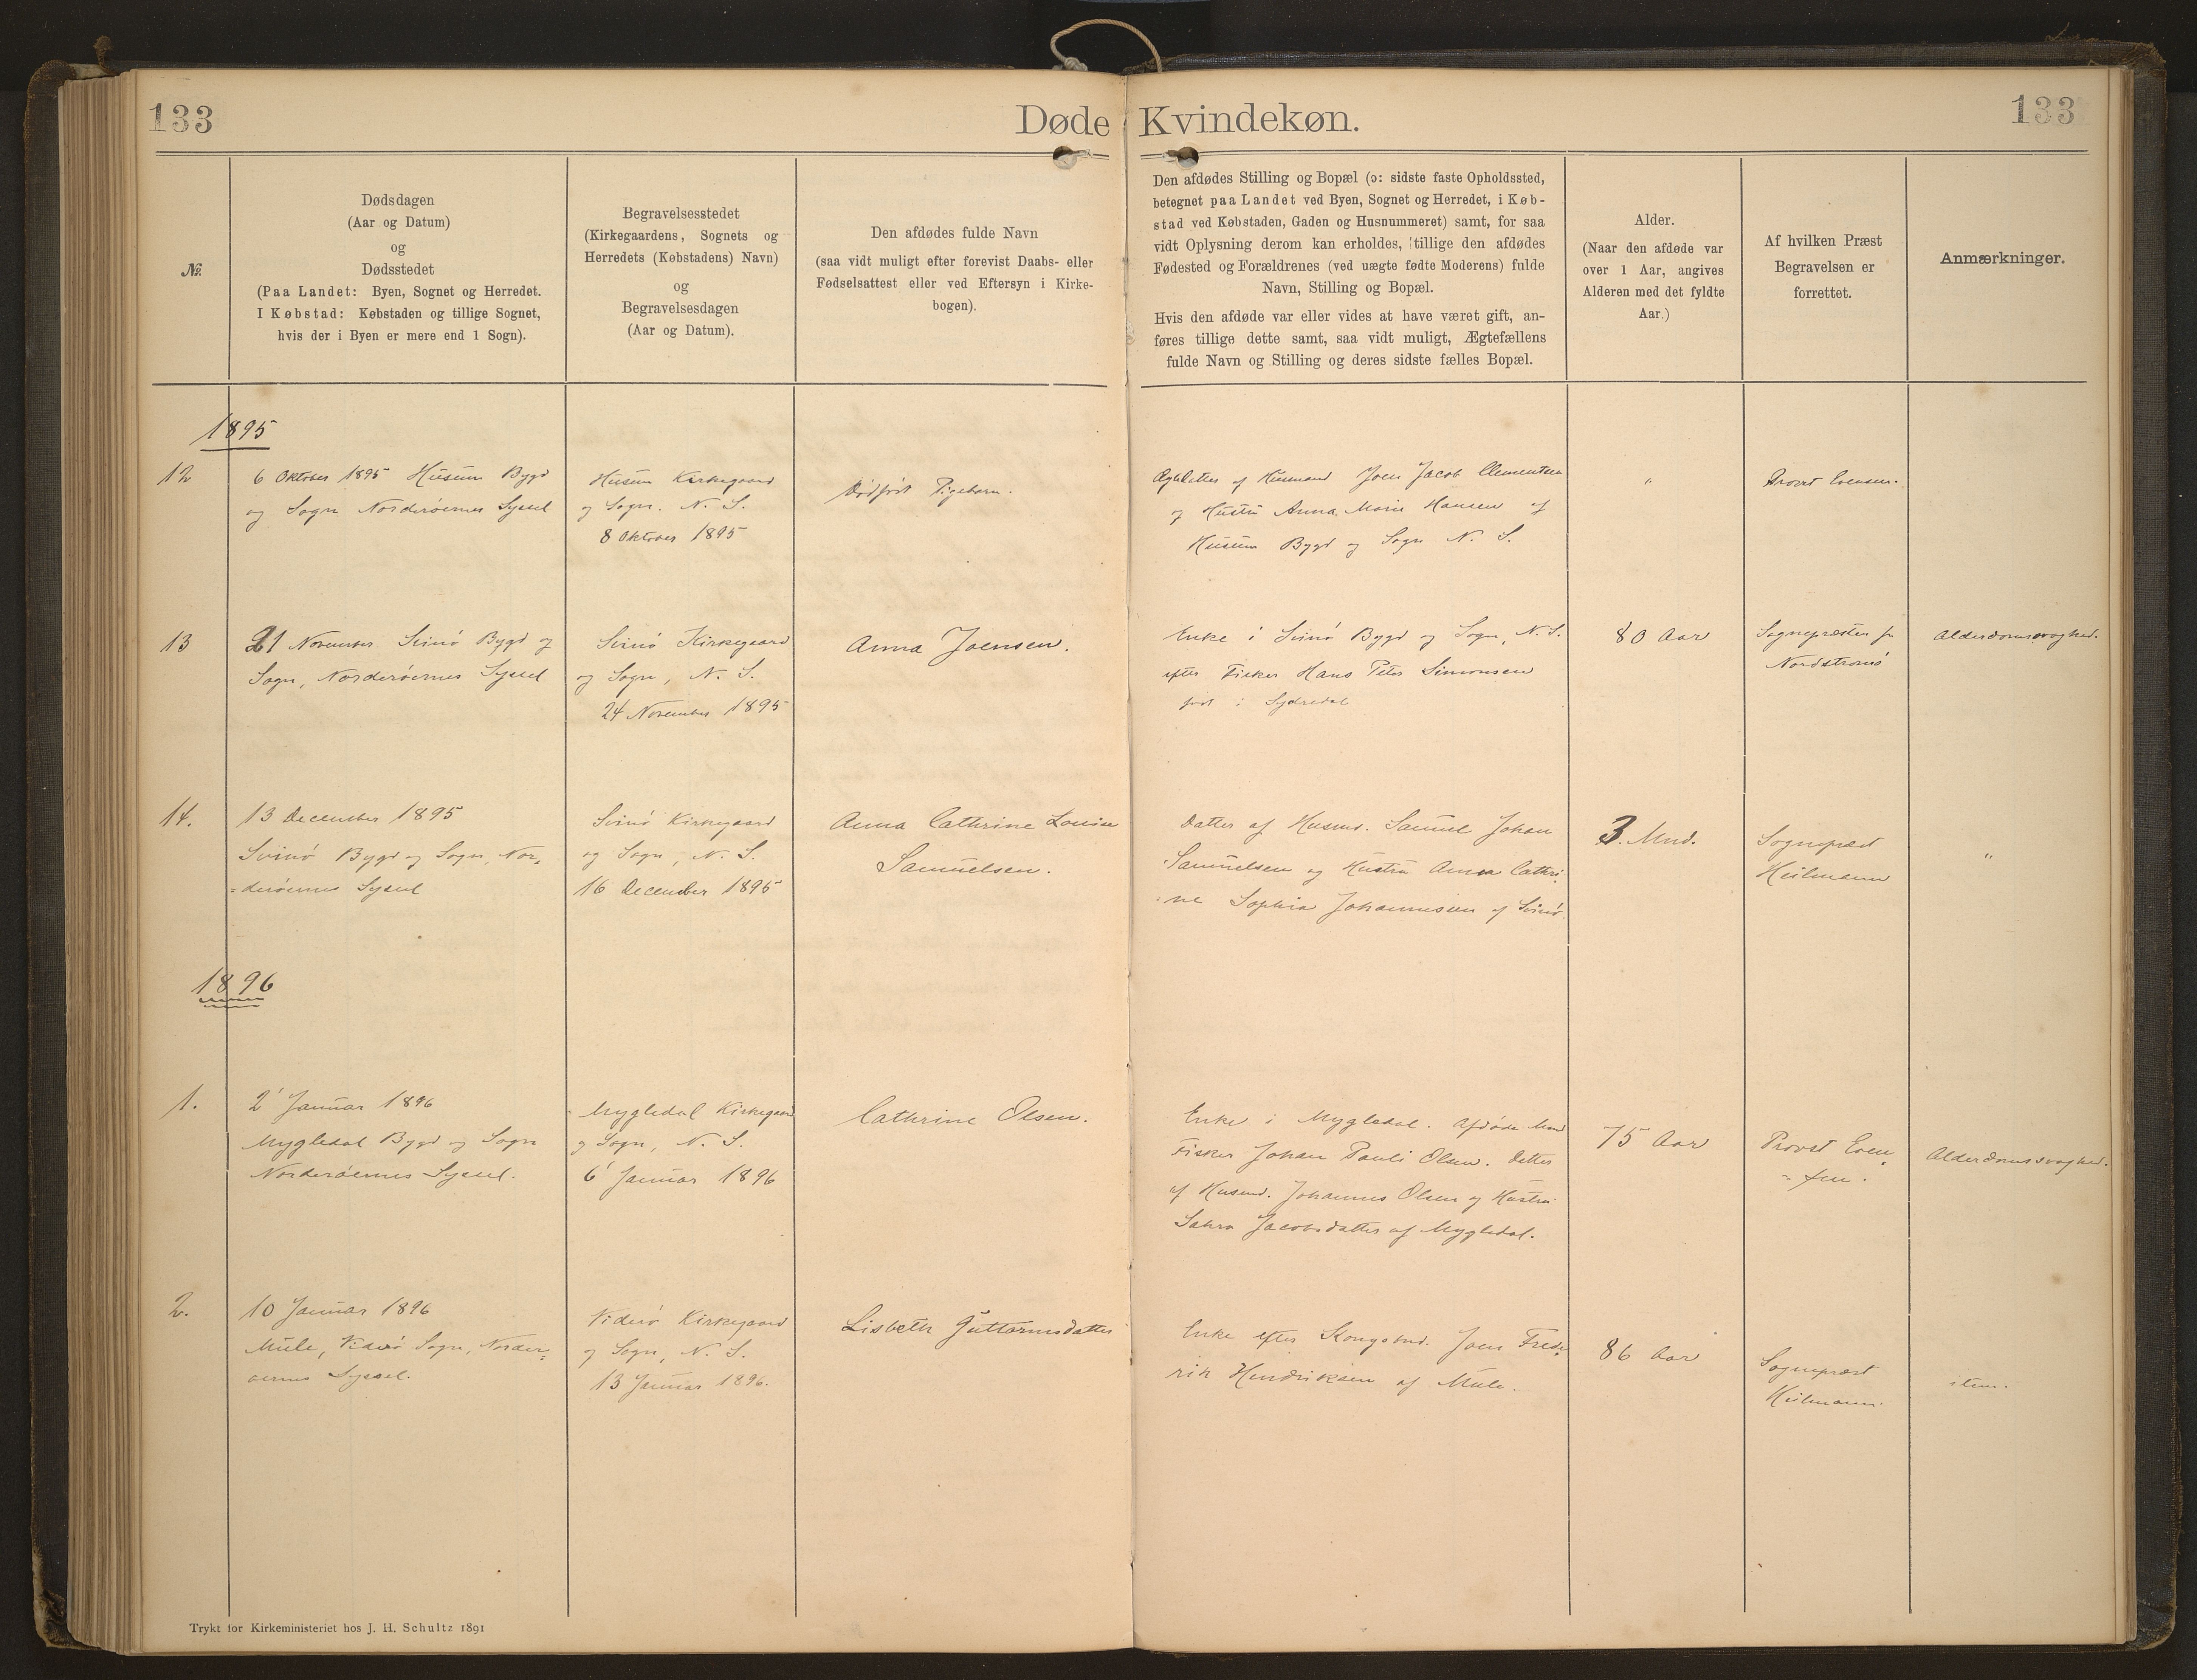 133
Døde Kvindekøn.
133
№
Dødsdagen
(Aar og Datum)
og
Dødsstedet
(Paa Landet: Byen, Sognet og Herredet.
I Købstad: Købstaden og tillige Sognet,
hvis der i Byen er mere end 1 Sogn).
Begravelsesstedet
(Kirkegaardens, Sognets og
Herredets (Købstadens) Navn)
og
Begravelsesdagen
(Aar og Datum).
Den afdødes fulde Navn
(saa vidt muligt efter forevist Daabs- eller
Fødselsattest eller ved Eftersyn i Kirke-
bogen).
Den afdødes Stilling og Bopæl (ɔ: sidste faste Opholdssted,
betegnet paa Landet ved Byen, Sognet og Herredet, i Køb-
stad ved Købstaden, Gaden og Husnummeret) samt, for saa
vidt Oplysning derom kan erholdes, tillige den afdødes
Fødested og Forældrenes (ved uægte fødte Moderens) fulde
Navn, Stilling og Bopæl.
Hvis den afdøde var eller vides at have været gift, an-
føres tillige dette samt, saa vidt muligt, Ægtefællens
fulde Navn og Stilling og deres sidste fælles Bopæl.
Alder.
(Naar den afdøde var
over 1 Aar, angives
Alderen med det fyldte
Aar.)
Af hvilken Præst
Begravelsen er
forrettet.
Anmærkninger.
1895
12
6 Oktober 1895 Husum Bygd
og Sogn Norderøernes Syssel
Husum Kirkegaard
og Sogn. N. S.
8 Oktober 1895
Dødfødt Pigebarn.
Ægtdatter af Husmand Joen Jacob Clementsen
og Hustru Anna Marie Hansen af
Husum Bygd og Sogn N. S.
"
Provst Evensen.
13
21 November Svinø Bygd og
Sogn, Norderøernes Syssel
Svinø Kirkegaard
og Sogn, N. S.
24 November 1895
Anna Joensen.
Enke i Svinø Bygd og Sogn, N. S.
efter Fisker Hans Peter Simonsen
født i Sydredal
80 Aar
Sognepræsten fr
Nordstrømø
Alderdomssvaghed.
14.
13 December 1895
Svinø Bygd og Sogn, Nor-
-derøernes Syssel
Svinø Kirkegaard
og Sogn, N. S.
16 December 1895
Anna Cathrine Louise
Samuelsen.
Datter af Husmd. Samuel Johan
Samuelsen og Hustru Anna Cathri-
-ne Sophia Johannesen af Svinø.
3. Mnd.
Sognepræst
Heilmann
"
1896
1.
2' Januar 1896
Mygledal Bygd og Sogn
Norderøernes Syssel.
Mygledal Kirkegaard
og Sogn, N. S.
6' Januar 1896
Cathrine Olsen.
Enke i Mygledal. Afdøde Mand
Fisker Johan Pauli Olsen. Datter
af Husmd. Johannes Olsen og Hustru
Jacobsdatter af Mygledal.
75 Aar
Provst Even-
-sen.
Alderdomssvaghed.
2.
10 Januar 1896
Mule, Viderø Sogn, Norder-
øernes Syssel.
Viderø Kirkegaard
og Sogn, N. S.
13 Januar 1896.
Lisbeth Guttormsdatter
Enke efter Kongsbmd. Joen Frede-
rik Hendriksen af Mule.
86 Aar
Sognepræst
Heilmann.
item.
Trykt for Kirkeministeriet hos J. H. Schultz 1891